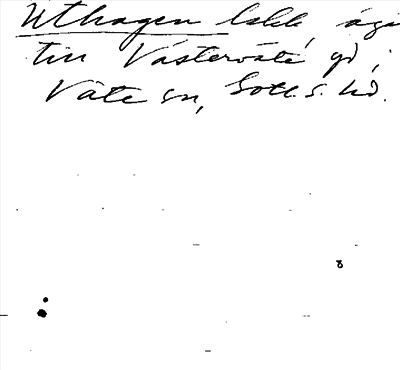 Uthagen lokk, äga
till Västerväte gd,
Väte sn, Gotl. S. hd.